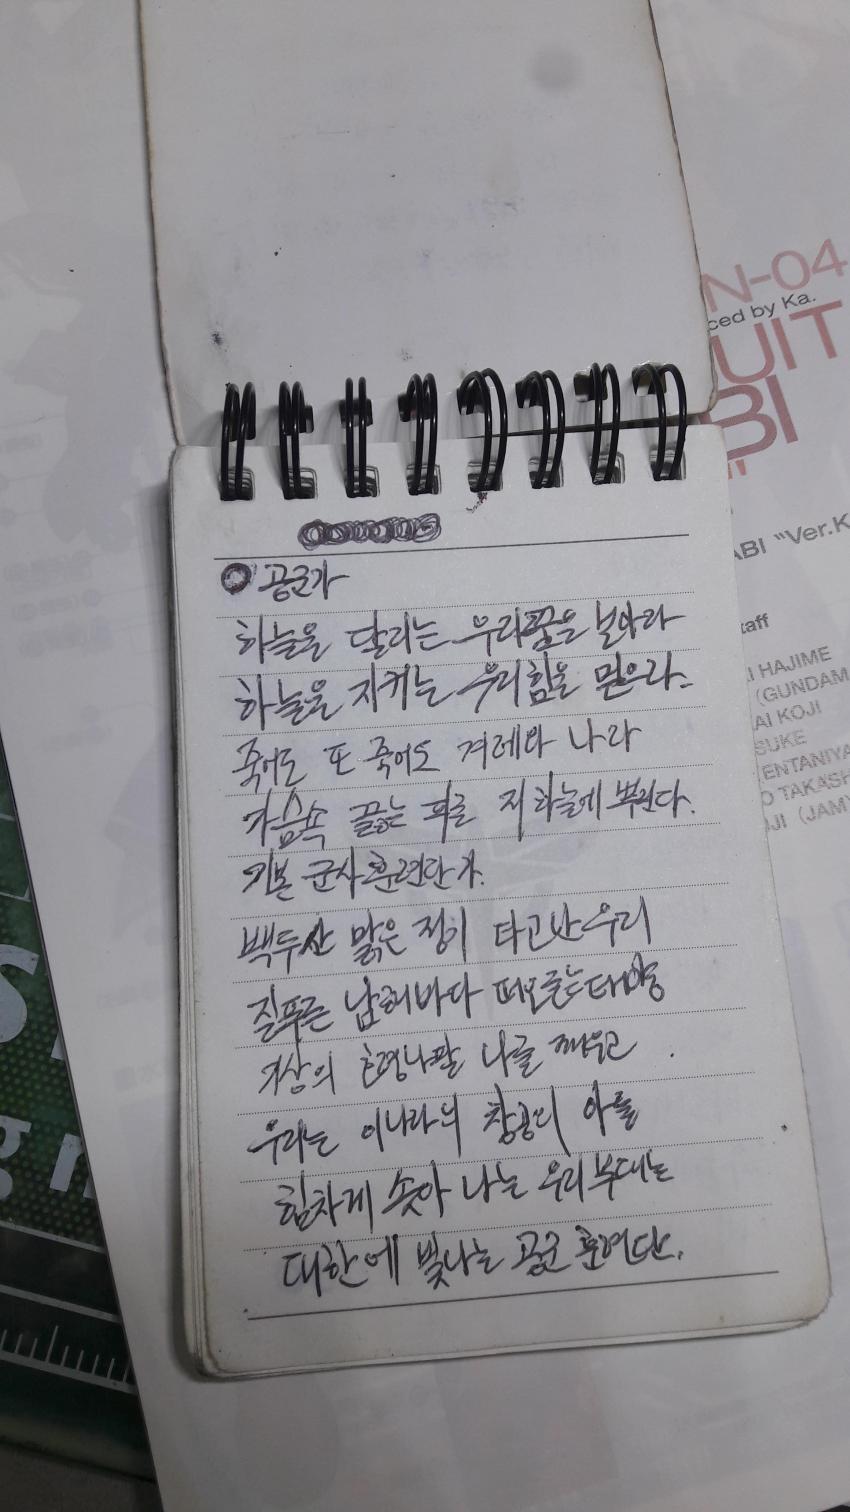 N-04
ced by Ka.
UIT
BI
ABI "Ver.K
taff
I HAJIME
(GUNDAM
AI KOJI
SUKE
ENTANIYA
O TAKASH
JI (JAM
공군가
하늘을 달리는 우리꿈을 보아라
하늘을 지키는 우리힘을 믿으라
죽어도 또 죽어도 겨레와 나라
가슴속 끓는 피를 저 하늘에 뿌린다.
기본 군사훈련단가.
백두산 맑은 정기 타고난 우리
짙푸른 남해바다 떠오르는 태양
기상의 나팔 나를 깨우고
우리는 이나라의 창공의 아들
힘차게 솟아 나는 우리부대는
대한에 빛나는 공군 훈련단.